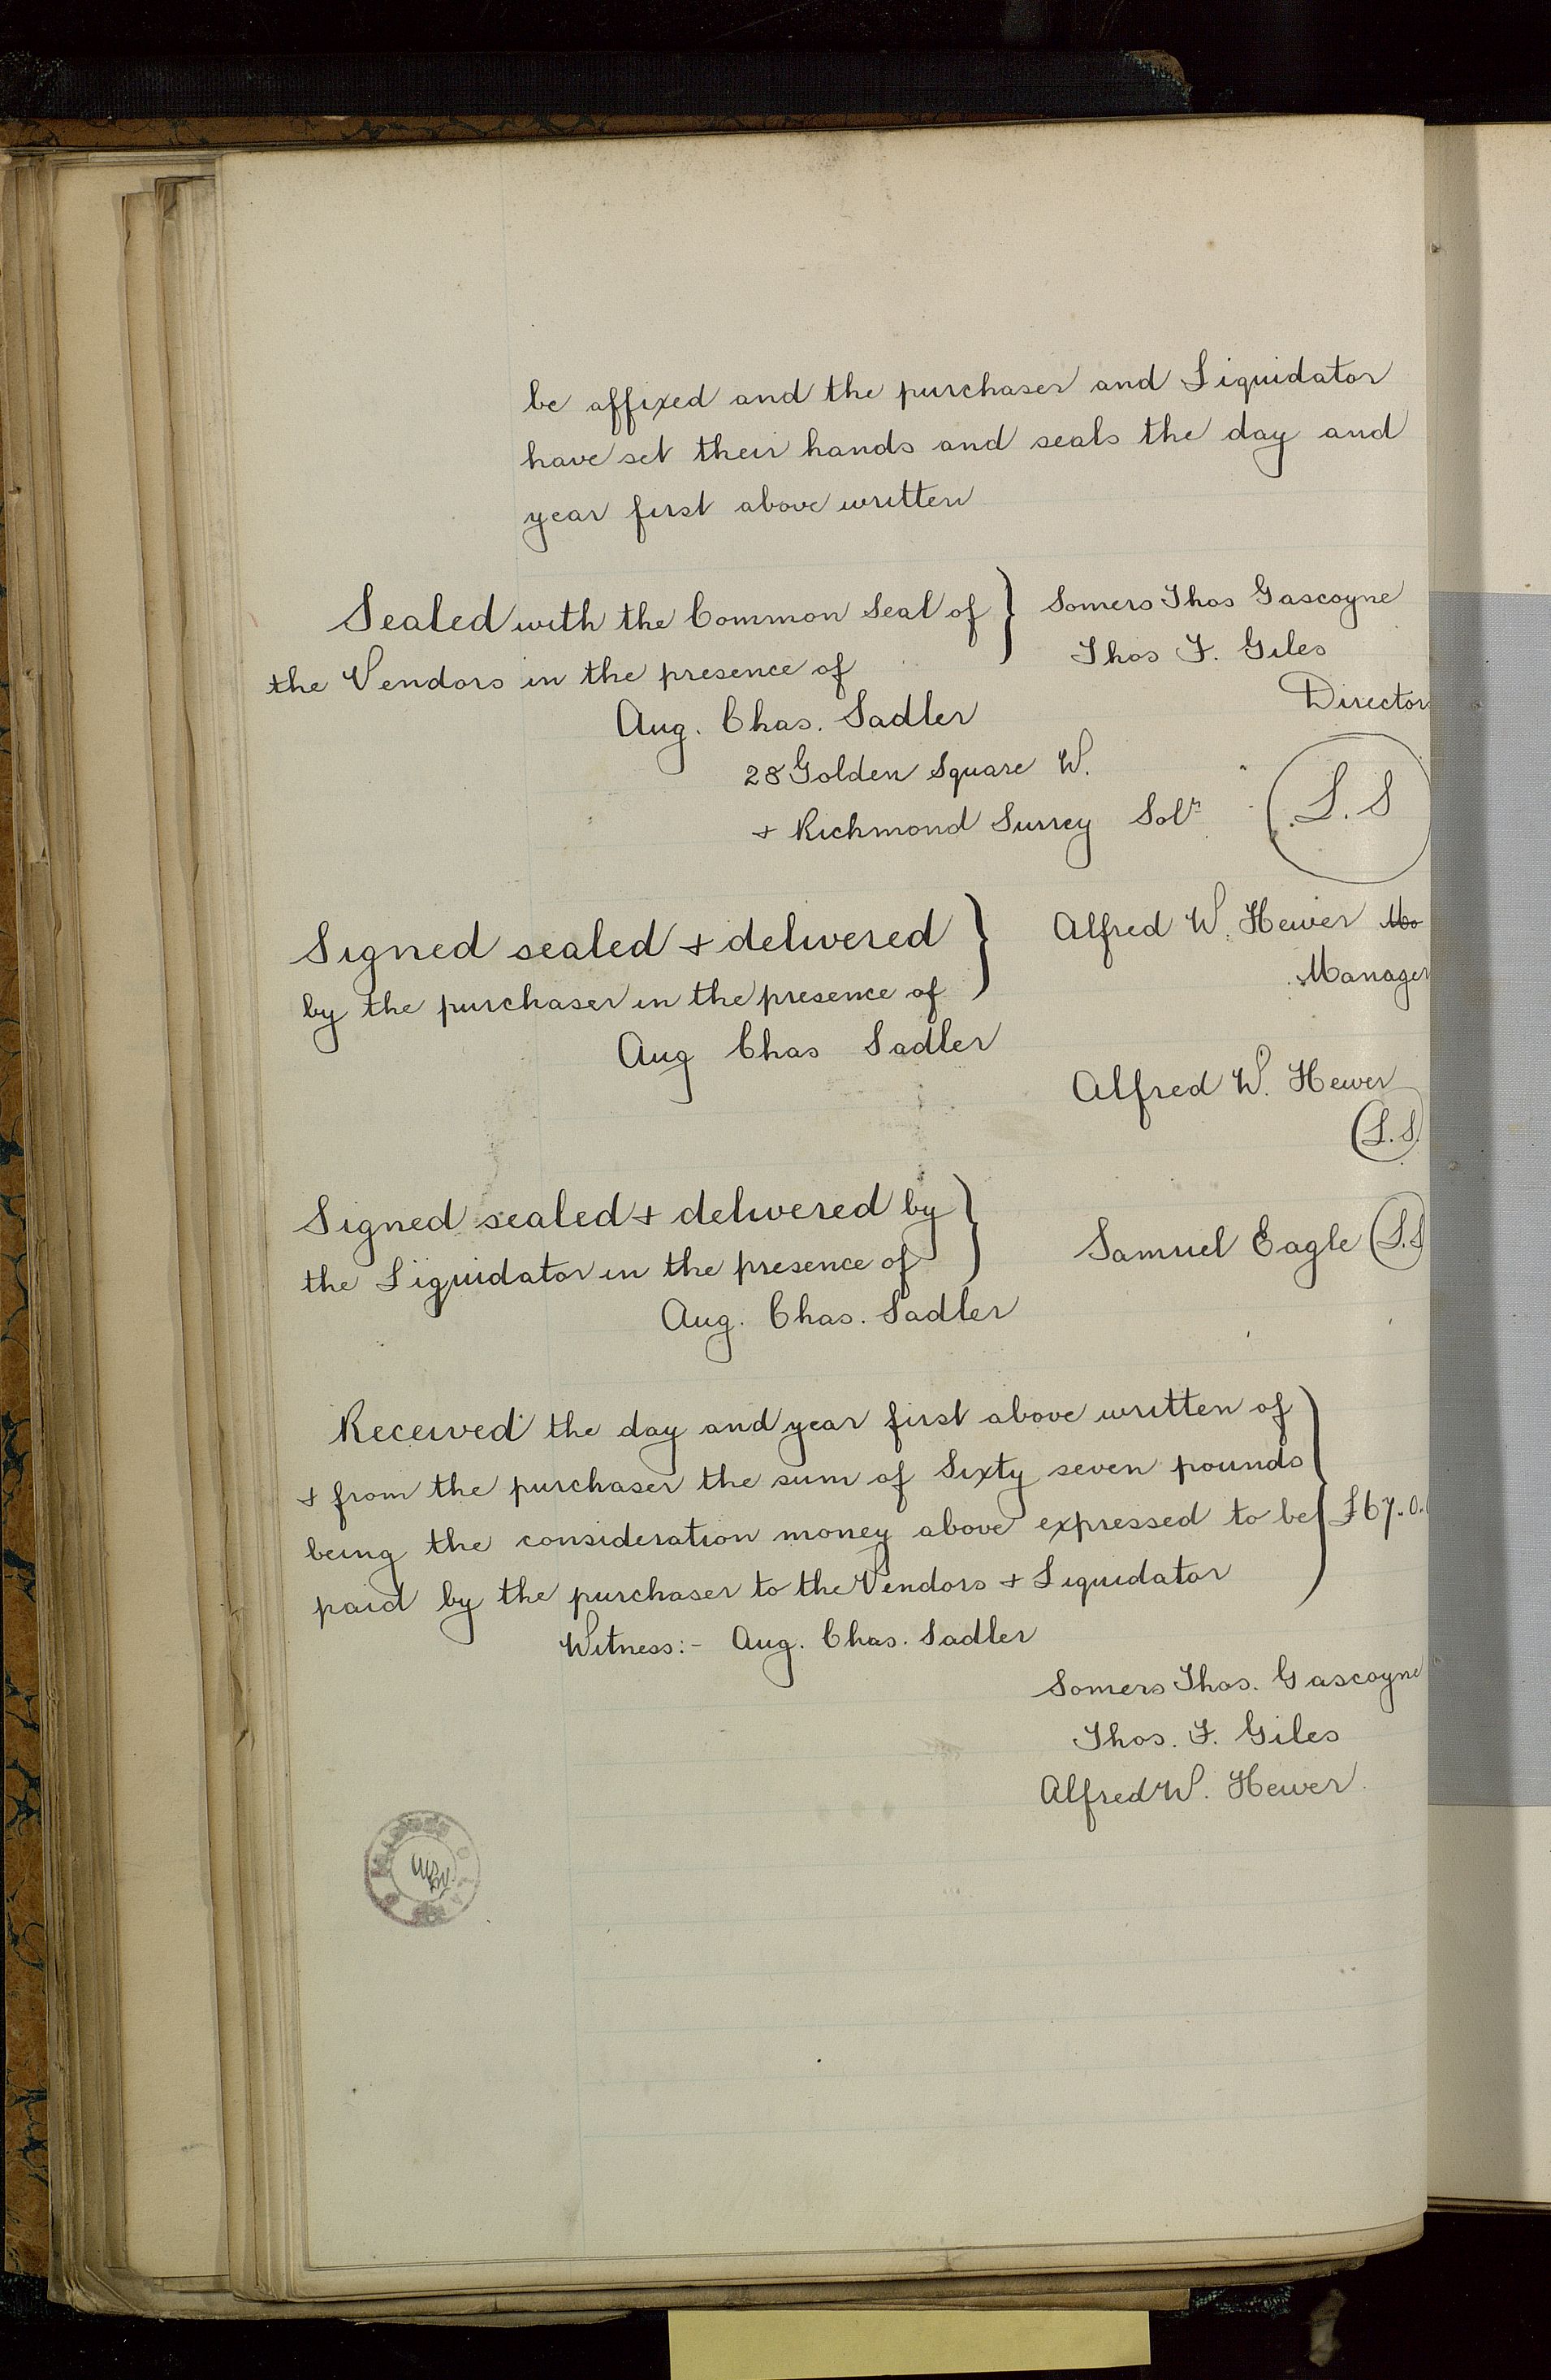 be affixed and the purchaser and Liquidator
have set their hands and seals the day and
year first above written
Sealed with the Common Seal of } Somers Thos Gascoyne
the Vendors in the presence of Thos F. Giles
Director
Aug. Chas. Sadler
28 Golden Square W.
+ Richmond Surrey Solr L.S
Signed sealed + delivered } Alfred W. Hewer Mo
by the purchaser in the presence of Manager
Aug Chas Sadler
Alfred W. Hewer
L.S.
Signed sealed + delivered by }
the Liquidator in the presence of Samuel Eagle L.S
Aug. Chas. Sadler
Received the day and year first above written of
+ from the purchaser the sum of Sixty seven pounds
being the consideration money above expressed to be } £67.0.
paid by the purchaser to the Vendors + Liquidator
Witness:- Aug. Chas. Sadler
Somers Thos. Gascoyne
Thos. F. Giles
Alfred W. Hewer